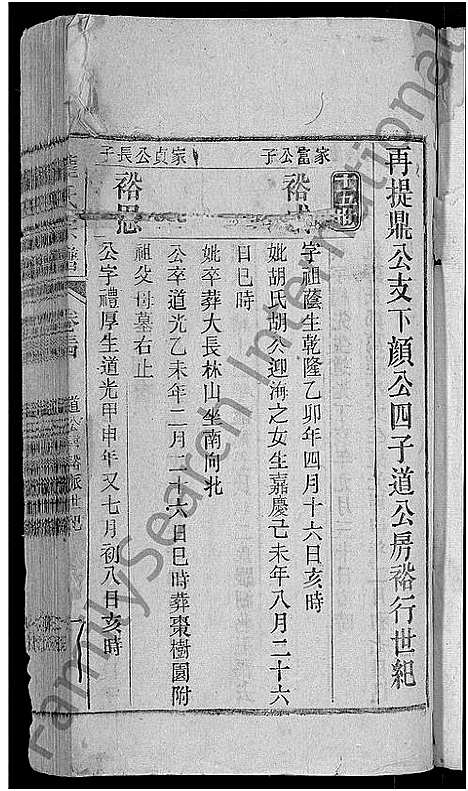 再提鼎公支下顔公四子道公房裕行世紀
十五世
家富公子
裕
字祖蔭生乾隆乙卯年四月十六日亥時
妣胡氏胡公迎海之女生嘉慶己未年八月二十六
日巳時
妣卒葬大長林山坐南向北
公卒道光乙未年二月二十六日巳時葬棗樹園附
祖父母墓右止
家貞公長子
裕恩
公字禮厚生道光甲申年又七月初八日亥時
卷四
道公房裕派世紀
FamilySearch International